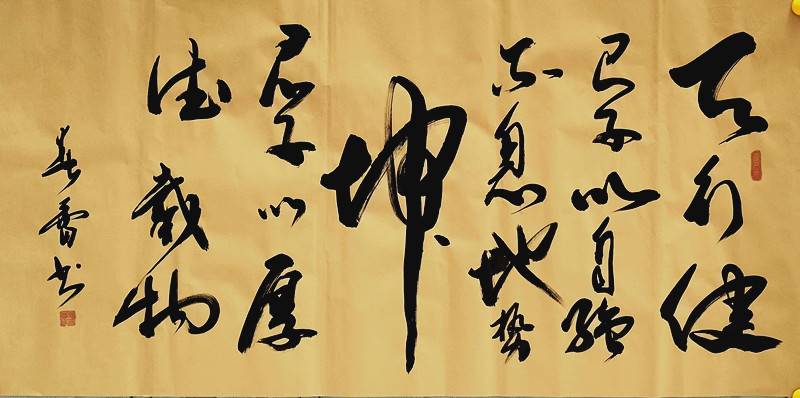 天行健
君子以自强
不息地势
坤
君子以厚
德载物
春雷书